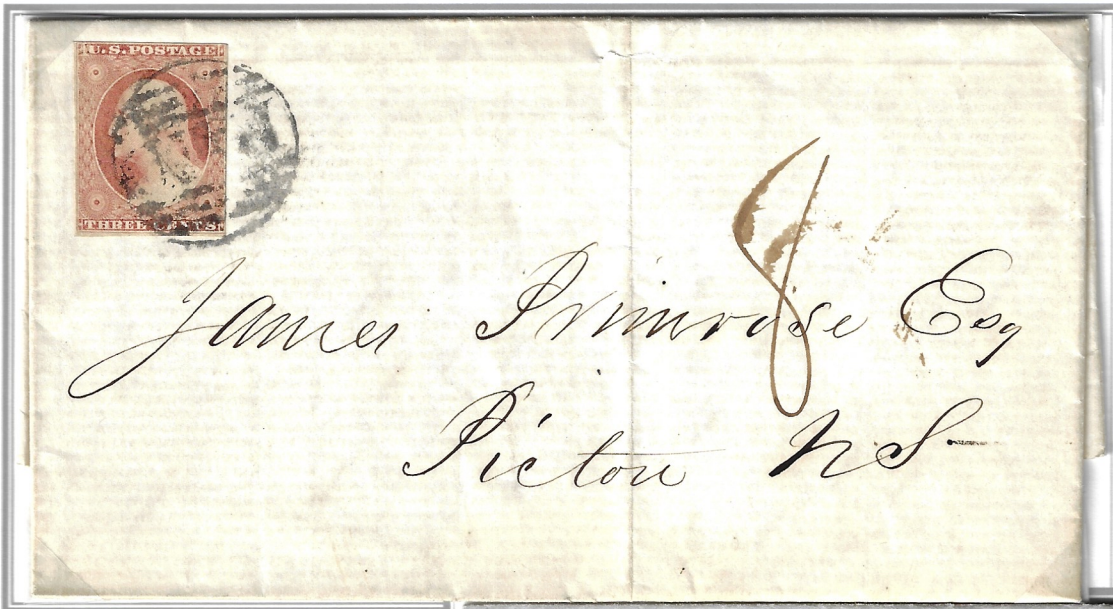 U.S. POSTAGE
THREE CENTS
8
James Primrose Esq
Pictou NS